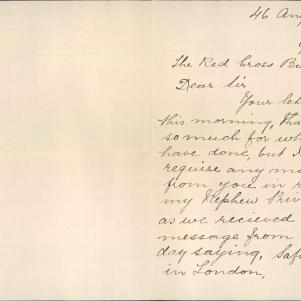 46 An
The Red Cross Bu
Dear Sir
Your let
this morning, Tha
so much for wh
have done, but I
requise any mo
from you in r
my Nephew Priv
as we recieved
message from
day saying. Saf
in London,